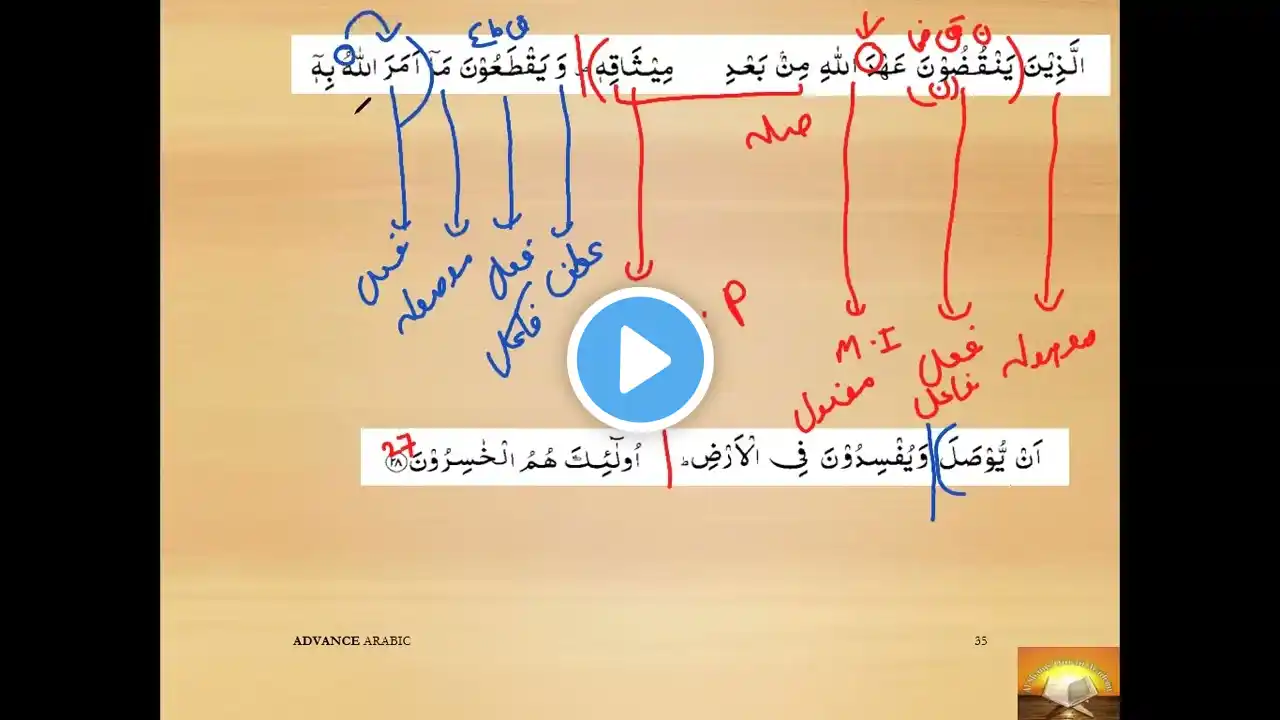 ن ق ض
ق ط ع
الَّذِيْنَ يَنْقُضُوْنَ عَهْدَ اللّٰهِ مِنْۢ بَعْدِ مِيْثَاقِهٖ ۪ وَ يَقْطَعُوْنَ مَاۤ اَمَرَ اللّٰهُ بِهٖۤ
(ن)
صلہ
موصولہ
فعل
فاعل
M.I
مفعول
P
عطف
فعل
فاعل
موصولہ
فعل
اَنْ يُّوْصَلَ وَيُفْسِدُوْنَ فِي الْاَرْضِ ؕ اُولٰٓئِكَ هُمُ الْخٰسِرُوْنَ
27
ADVANCE ARABIC
35